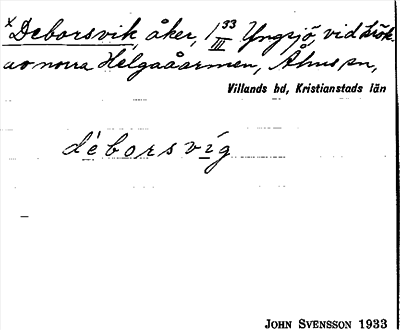 x Deborsvik, åker, 1 33/III Yngsjö, vid krök.
av norra Helgaåarmen, Åhus sn,
Villands hd, Kristianstads län
déborsvíg
JOHN SVENSSON 1933